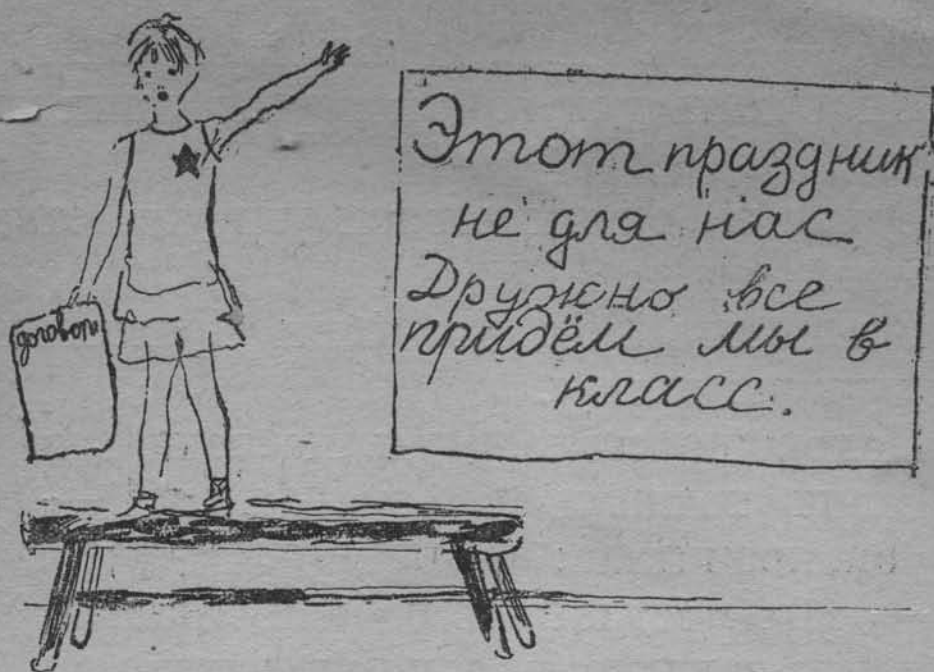 договор
Этот праздник
не для нас
Дружно все
придём мы в
класс.